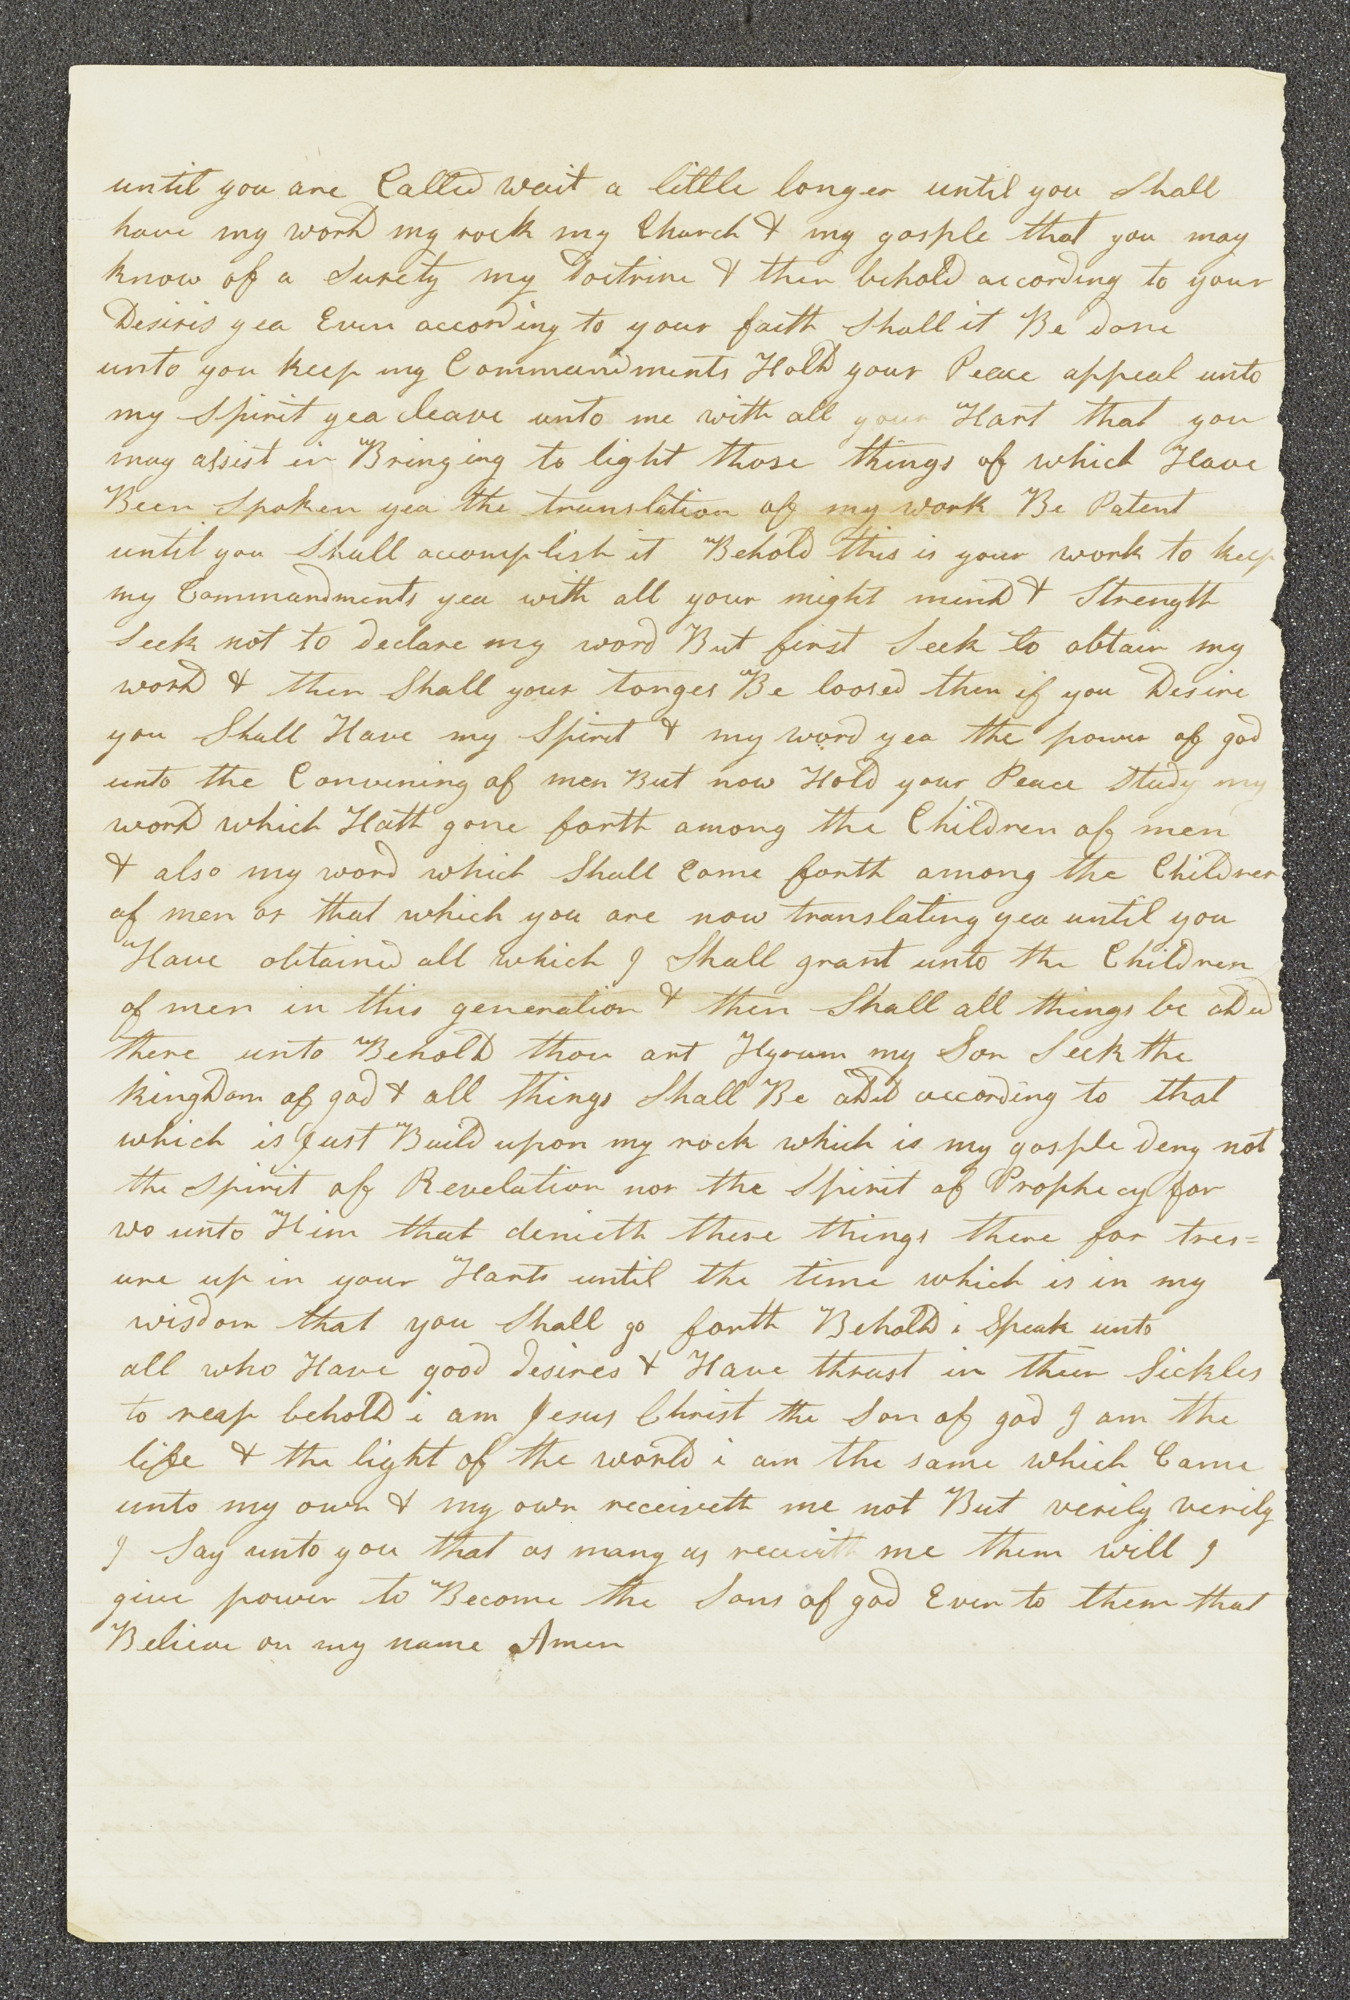 until you are Called wait a little longer until you Shall
have my word my rock my Church & my gosple that you may
know of a Surety my Doctrine & then behold according to your
Desiris yea Even according to your faith Shall it Be done
unto you keep my Commandments Hold your Peace appeal unto
my Spirit yea cleave unto me with all your Hart that you
may assist in Bringing to light those things of which Have
Been Spoken yea the translation of my work Be Patent
until you Shall accomplish it Behold this is your work to keep
my Commandments yea with all your might mind & Strength
Seek not to Declare my word But first Seek to obtain my
word & then Shall your tonges Be loosed then if you Desire
you Shall Have my Spirit & my word yea the power of god
unto the Convining of men But now Hold your Peace Study my
word which Hath gone forth among the Children of men
& also my word which Shall Come forth among the Children
of men or that which you are now translating yea until you
Have obtained all which I Shall grant unto the Children
of men in this generation & then Shall all things be added
there unto Behold thou art Hyrum my Son Seek the
kingdom of god & all things Shall Be addid according to that
which is Just Build upon my rock which is my gosple Deny not
the Spirit of Revelation nor the Spirit of Prophecy for
wo unto Him that denieth these things there for tres=
ure up in your Harts until the time which is in my
wisdom that you Shall go forth Behold i Speak unto
all who Have good Desires & Have thrust in their Sickles
to reap behold i am Jesus Christ the Son of god I am the
life & the light of the world i am the same which Came
unto my own & my own receiveth me not But verily verily
I Say unto you that as many as receivith me them will I
give power to Become the Sons of god Even to them that
Believe on my name Amen